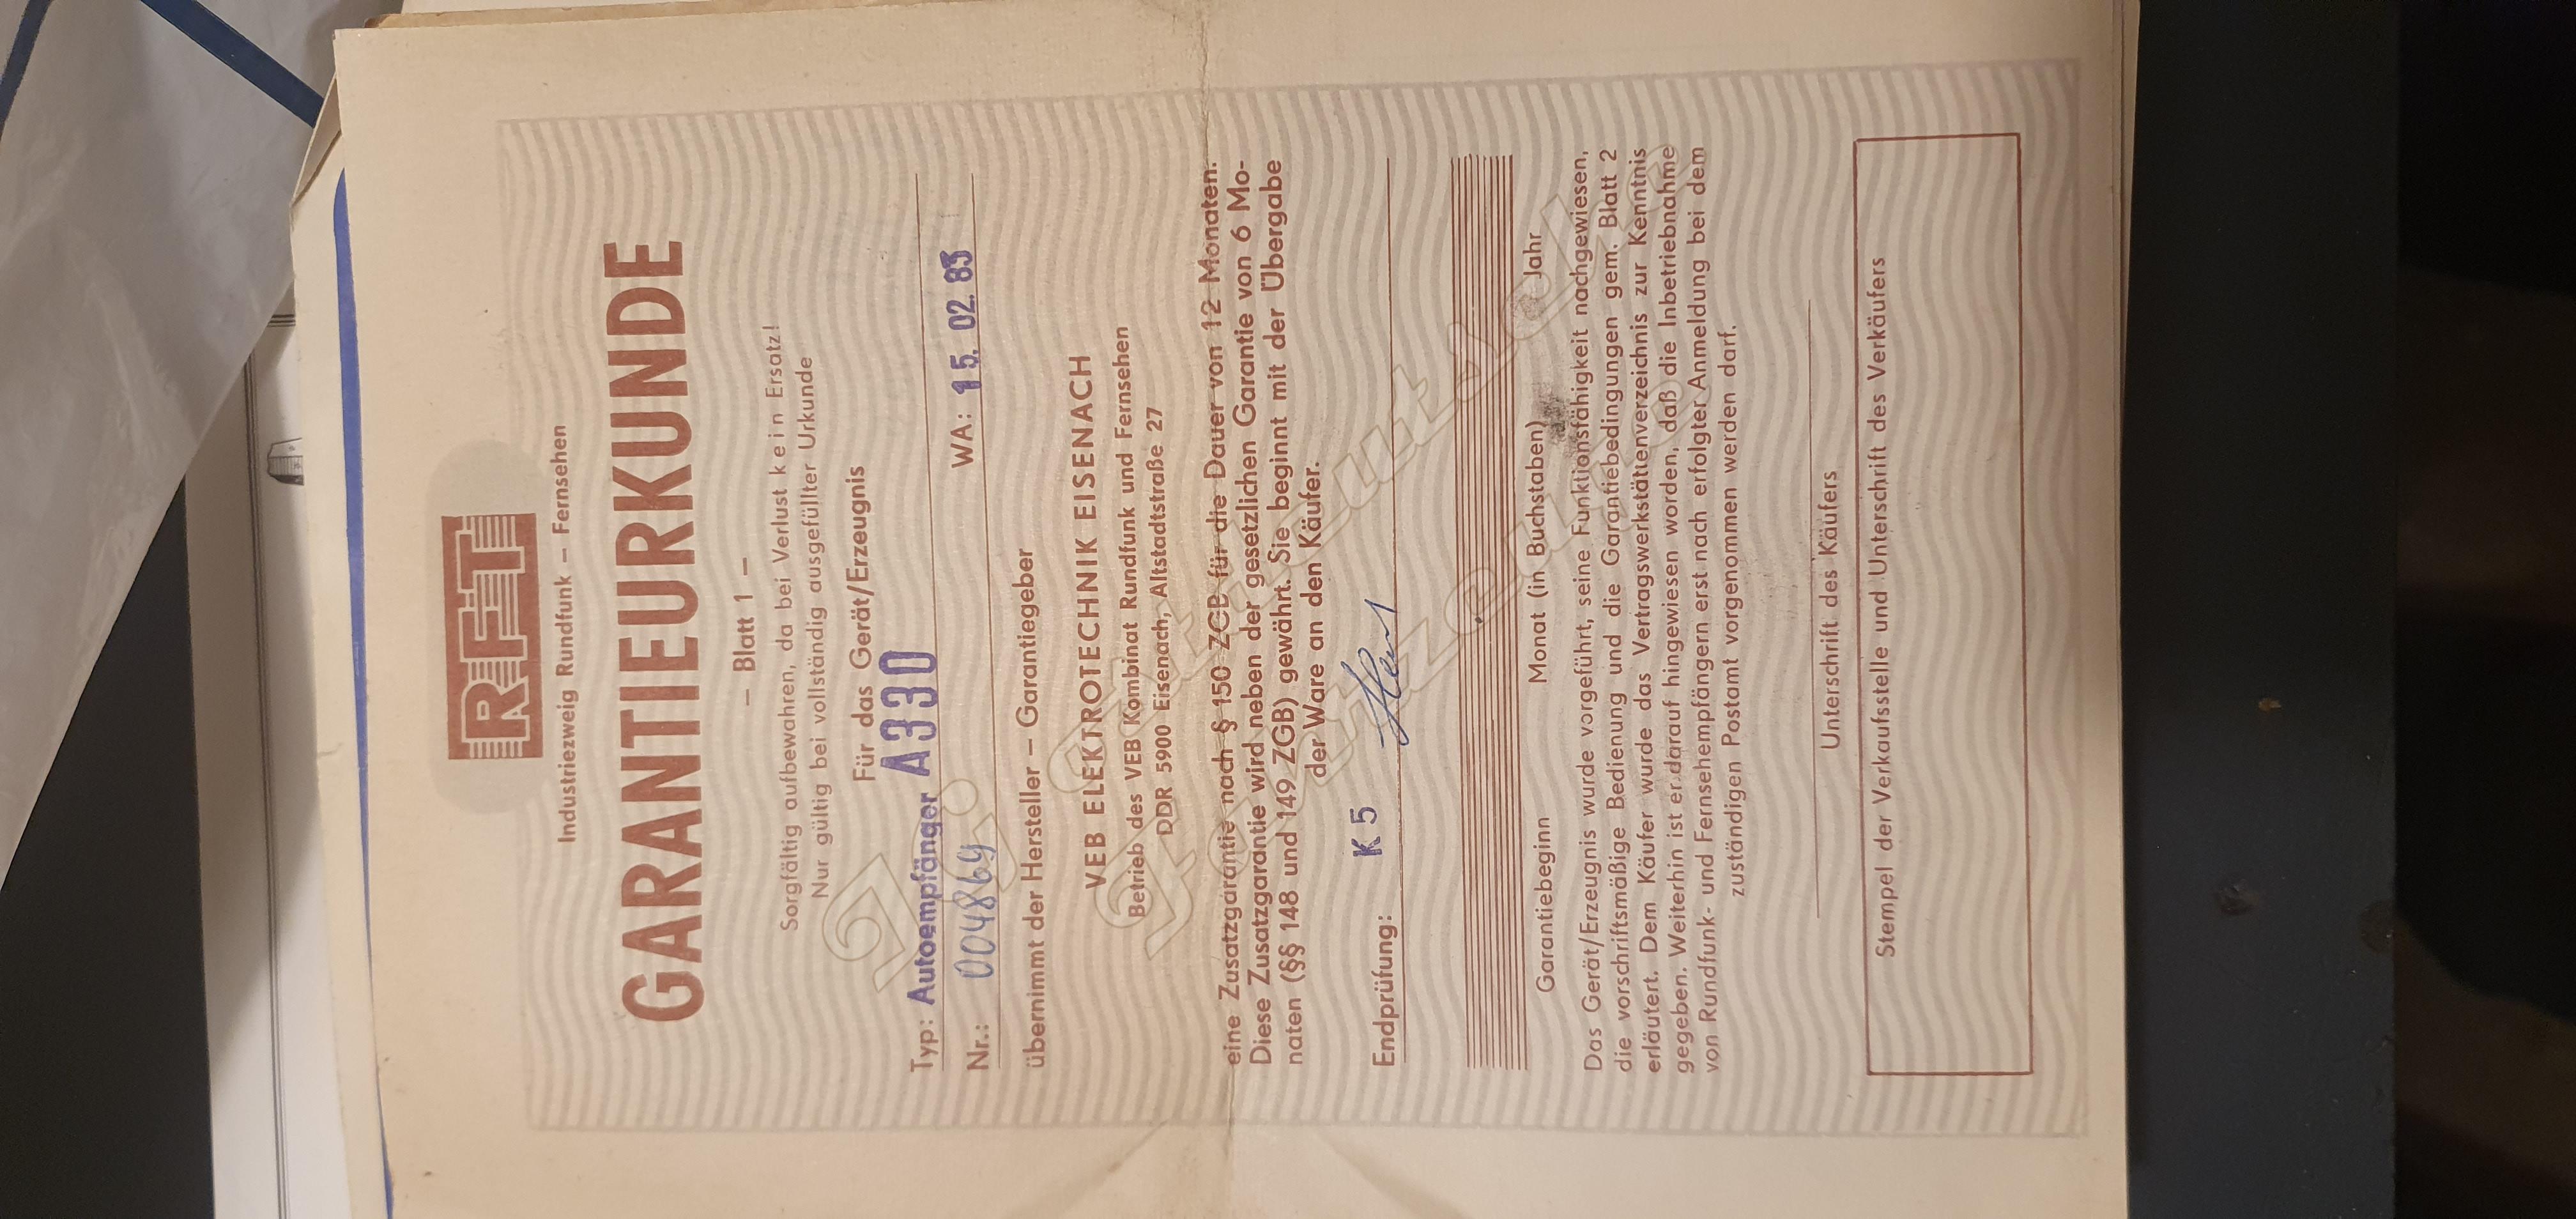 RFT
Industriezweig Rundfunk – Fernsehen
GARANTIEURKUNDE
– Blatt 1 –
Sorgfältig aufbewahren, da bei Verlust kein Ersatz!
Nur gültig bei vollständig ausgefüllter Urkunde
Für das Gerät/Erzeugnis
Typ: Autoempfänger A330
Nr.: 0048669 WA: 15. 02. 83
übernimmt der Hersteller – Garantiegeber
VEB ELEKTROTECHNIK EISENACH
Betrieb des VEB Kombinat Rundfunk und Fernsehen
DDR 5900 Eisenach, Altstadtstraße 27
eine Zusatzgarantie nach § 150 ZGB für die Dauer von 12 Monaten.
Diese Zusatzgarantie wird neben der gesetzlichen Garantie von 6 Mo-
naten (§§ 148 und 149 ZGB) gewährt. Sie beginnt mit der Übergabe
der Ware an den Käufer.
Endprüfung: K 5
Garantiebeginn Monat (in Buchstaben) Jahr
Das Gerät/Erzeugnis wurde vorgeführt, seine Funktionsfähigkeit nachgewiesen,
die vorschriftsmäßige Bedienung und die Garantiebedingungen gem. Blatt 2
erläutert. Dem Käufer wurde das Vertragswerkstättenverzeichnis zur Kenntnis
gegeben. Weiterhin ist er darauf hingewiesen worden, daß die Inbetriebnahme
von Rundfunk- und Fernsehempfängern erst nach erfolgter Anmeldung bei dem
zuständigen Postamt vorgenommen werden darf.
Unterschrift des Käufers
Stempel der Verkaufsstelle und Unterschrift des Verkäufers